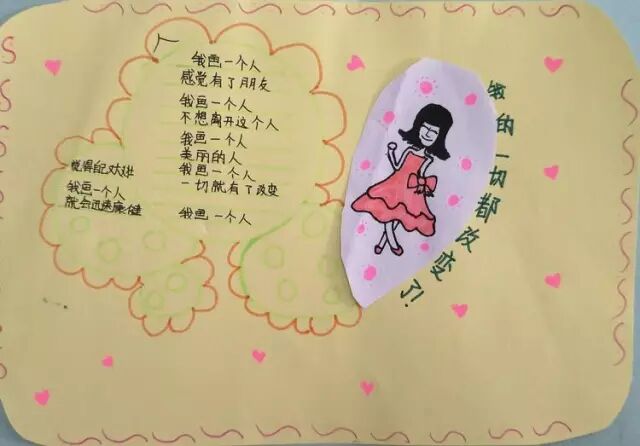 我画一个人
感觉有了朋友
我画一个人
不想离开这个人
我画一个人
美丽的人
我画一个人
一切就有了改变
我画一个人
觉得自己欢进
我画一个人
就会迅速康健
我的一切都改变了!